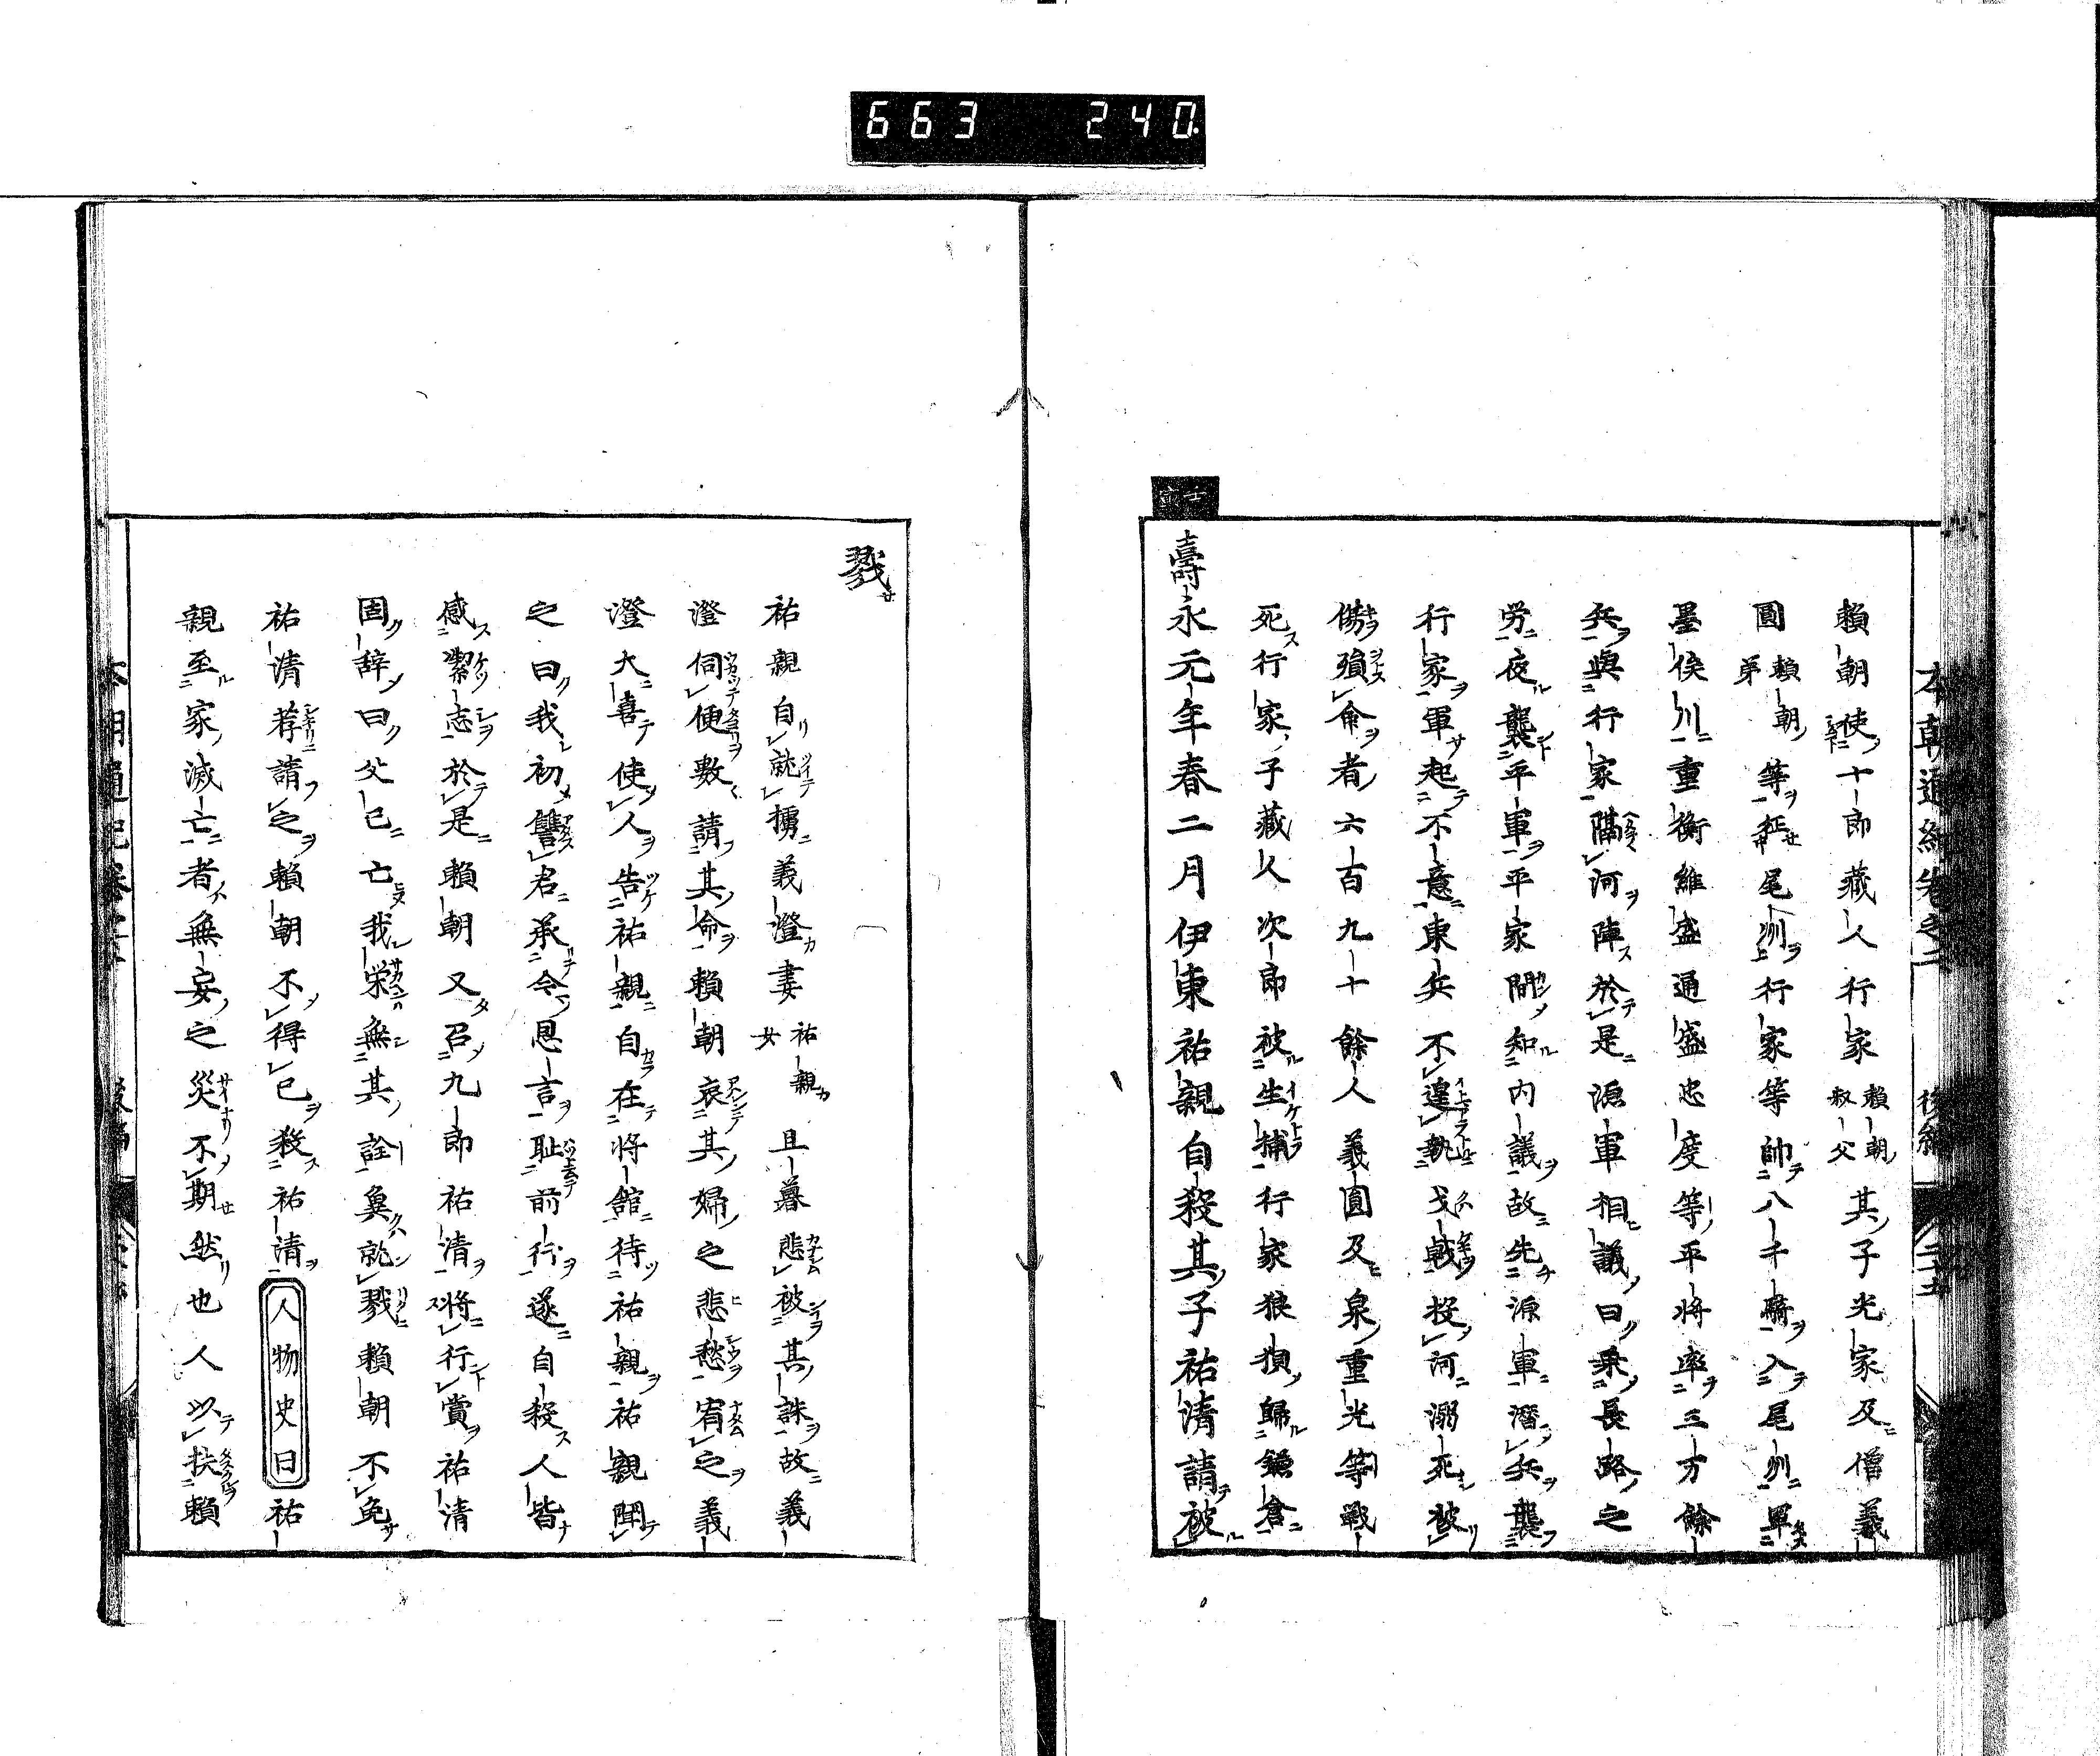 663 240
本朝通紀卷之二 後編 二十五
賴朝使十郎藏人行家賴朝叔父其子光家及僧義
圓賴朝弟等征尾州行家等帥八千騎入尾州軍
墨俣川重衡維盛通盛忠度等平將率三万餘
兵與行家隔河陣於是源軍相議曰乘長路之
労夜襲平軍平家間知內議故先源軍潛兵襲
行家軍起不意東兵不遑執戈戟投河溺死被
傷殞命者六百九十餘人義圓及泉重光等戰
死行家子藏人次郎被生捕行家狼狽歸鎌倉
壽永元年春二月伊東祐親自殺其子祐清請被
戮
祐親自就擄義澄妻祐親女且暮悲被其誅故義
澄伺便數請其命賴朝哀其婦之悲愁宥之義
澄大喜使人告祐親自在將館待祐親祐親聞
之曰我初讐君承令恩言耻前行遂自殺人皆
感潔志於是賴朝又召九郎祐清將行賞祐清
固辞曰父已亡我栄無其詮冀就戮賴朝不免
祐清荐請之賴朝不得已殺祐清 人物史曰 祐
親至家滅亡者無妄之災不期然也人以扶賴